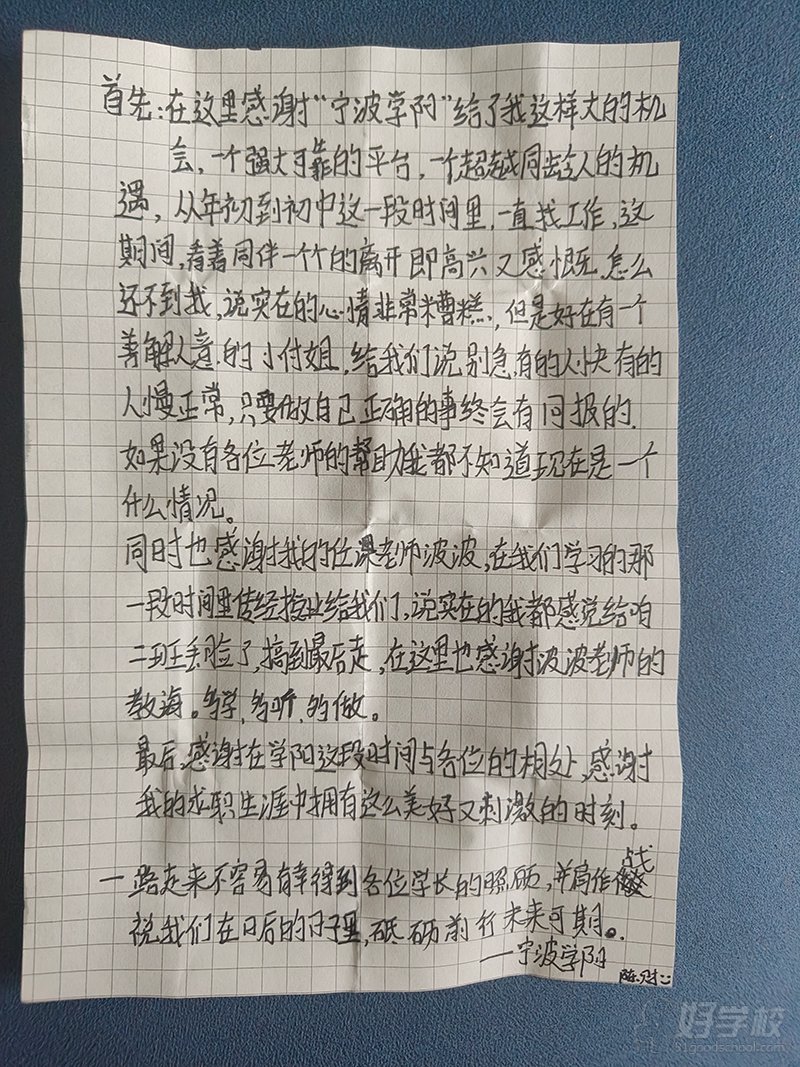 首先:在这里感谢“宁波学阳”给了我这样大的机
会,一个强大可靠的平台,一个超越同龄人的机
遇,从年初到初中这一段时间里,一直找工作,这
期间,看着同伴一个个的离开即高兴又感慨,怎么
还不到我,说实在的心情非常糟糕,但是好在有一个
善解人意的小付姐,给我们说别急,有的人快有的
人慢正常,只要做自己正确的事终会有回报的.
如果没有各位老师的帮助我都不知道现在是一个
什么情况。
同时也感谢我的任课老师波波,在我们学习的那
一段时间里传经授业给我们,说实在的我都感觉给咱
二班丢脸了,搞到最后走,在这里也感谢波波老师的
教海。多学,多听,多做。
最后,感谢在学阳这段时间与各位的相处,感谢
我的求职生涯中拥有这么美好又刺激的时刻。
一路走来不容易有幸得到各位学长的照顾,并肩作战
祝我们在日后的日子里,砥砺前行未来可期。
—宁波学阳
陈
好学校
91goodschool.com